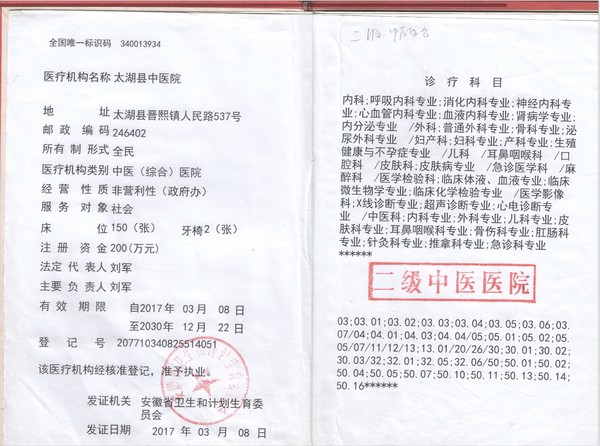 全国唯一标识码 340013934
医疗机构名称 太湖县中医院
地 址 太湖县晋熙镇人民路537号
邮 政 编 码 246402
所 有 制 形 式 全民
医疗机构类别 中医（综合）医院
经 营 性 质 非营利性（政府办）
服 务 对 象 社会
床 位 150（张） 牙椅2（张）
注 册 资 金 200（万元）
法 定 代 表 人 刘军
主 要 负 责 人 刘军
有 效 期 限 自2017 年 03 月 08 日
至2030 年 12 月 22 日
登 记 号 207710340825514051
该医疗机构经核准登记，准予执业。
发证机关 安徽省卫生和计划生育委
员会
发证日期 2017 年 03 月 08 日
二级
诊 疗 科 目
内科;呼吸内科专业;消化内科专业;神经内科专
业;心血管内科专业;血液内科专业;肾病学专业;
内分泌专业 /外科;普通外科专业;骨科专业;泌
尿外科专业 /妇产科;妇科专业;产科专业;生殖
健康与不孕症专业 /儿科 /耳鼻咽喉科 /口
腔科 /皮肤科;皮肤病专业 /急诊医学科 /麻
醉科 /医学检验科;临床体液、血液专业;临床
微生物学专业;临床化学检验专业 /医学影像
科;X线诊断专业;超声诊断专业;心电诊断专
业 /中医科;内科专业;外科专业;儿科专业;皮
肤科专业;耳鼻咽喉科专业;骨伤科专业;肛肠科
专业;针灸科专业;推拿科专业;急诊科专业
******
二级中医医院
03;03.01;03.02;03.03;03.04;03.05;03.06;03.
07/04;04.01;04.03;04.04/05;05.01;05.02;05.
05/07/11/12/13;13.01/20/26/30;30.01;30.02;
30.03/32;32.01;32.05;32.06/50;50.01;50.02;
50.04;50.05;50.07;50.10;50.11;50.13;50.14;
50.16******